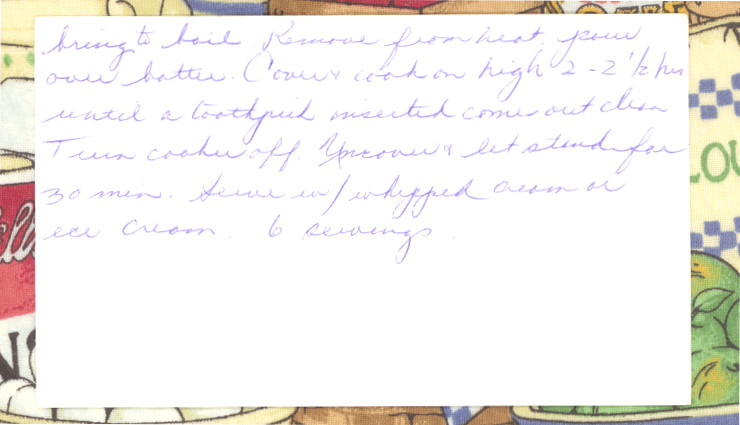 bring to boil Remove from heat, pour
over batter. Cover & cook on high 2-2 1/2 hrs
until a toothpick inserted comes out clean
Turn cooker off. Uncover & let stand for
30 min. Serve w/ whipped cream or
ice cream. 6 servings.
OU